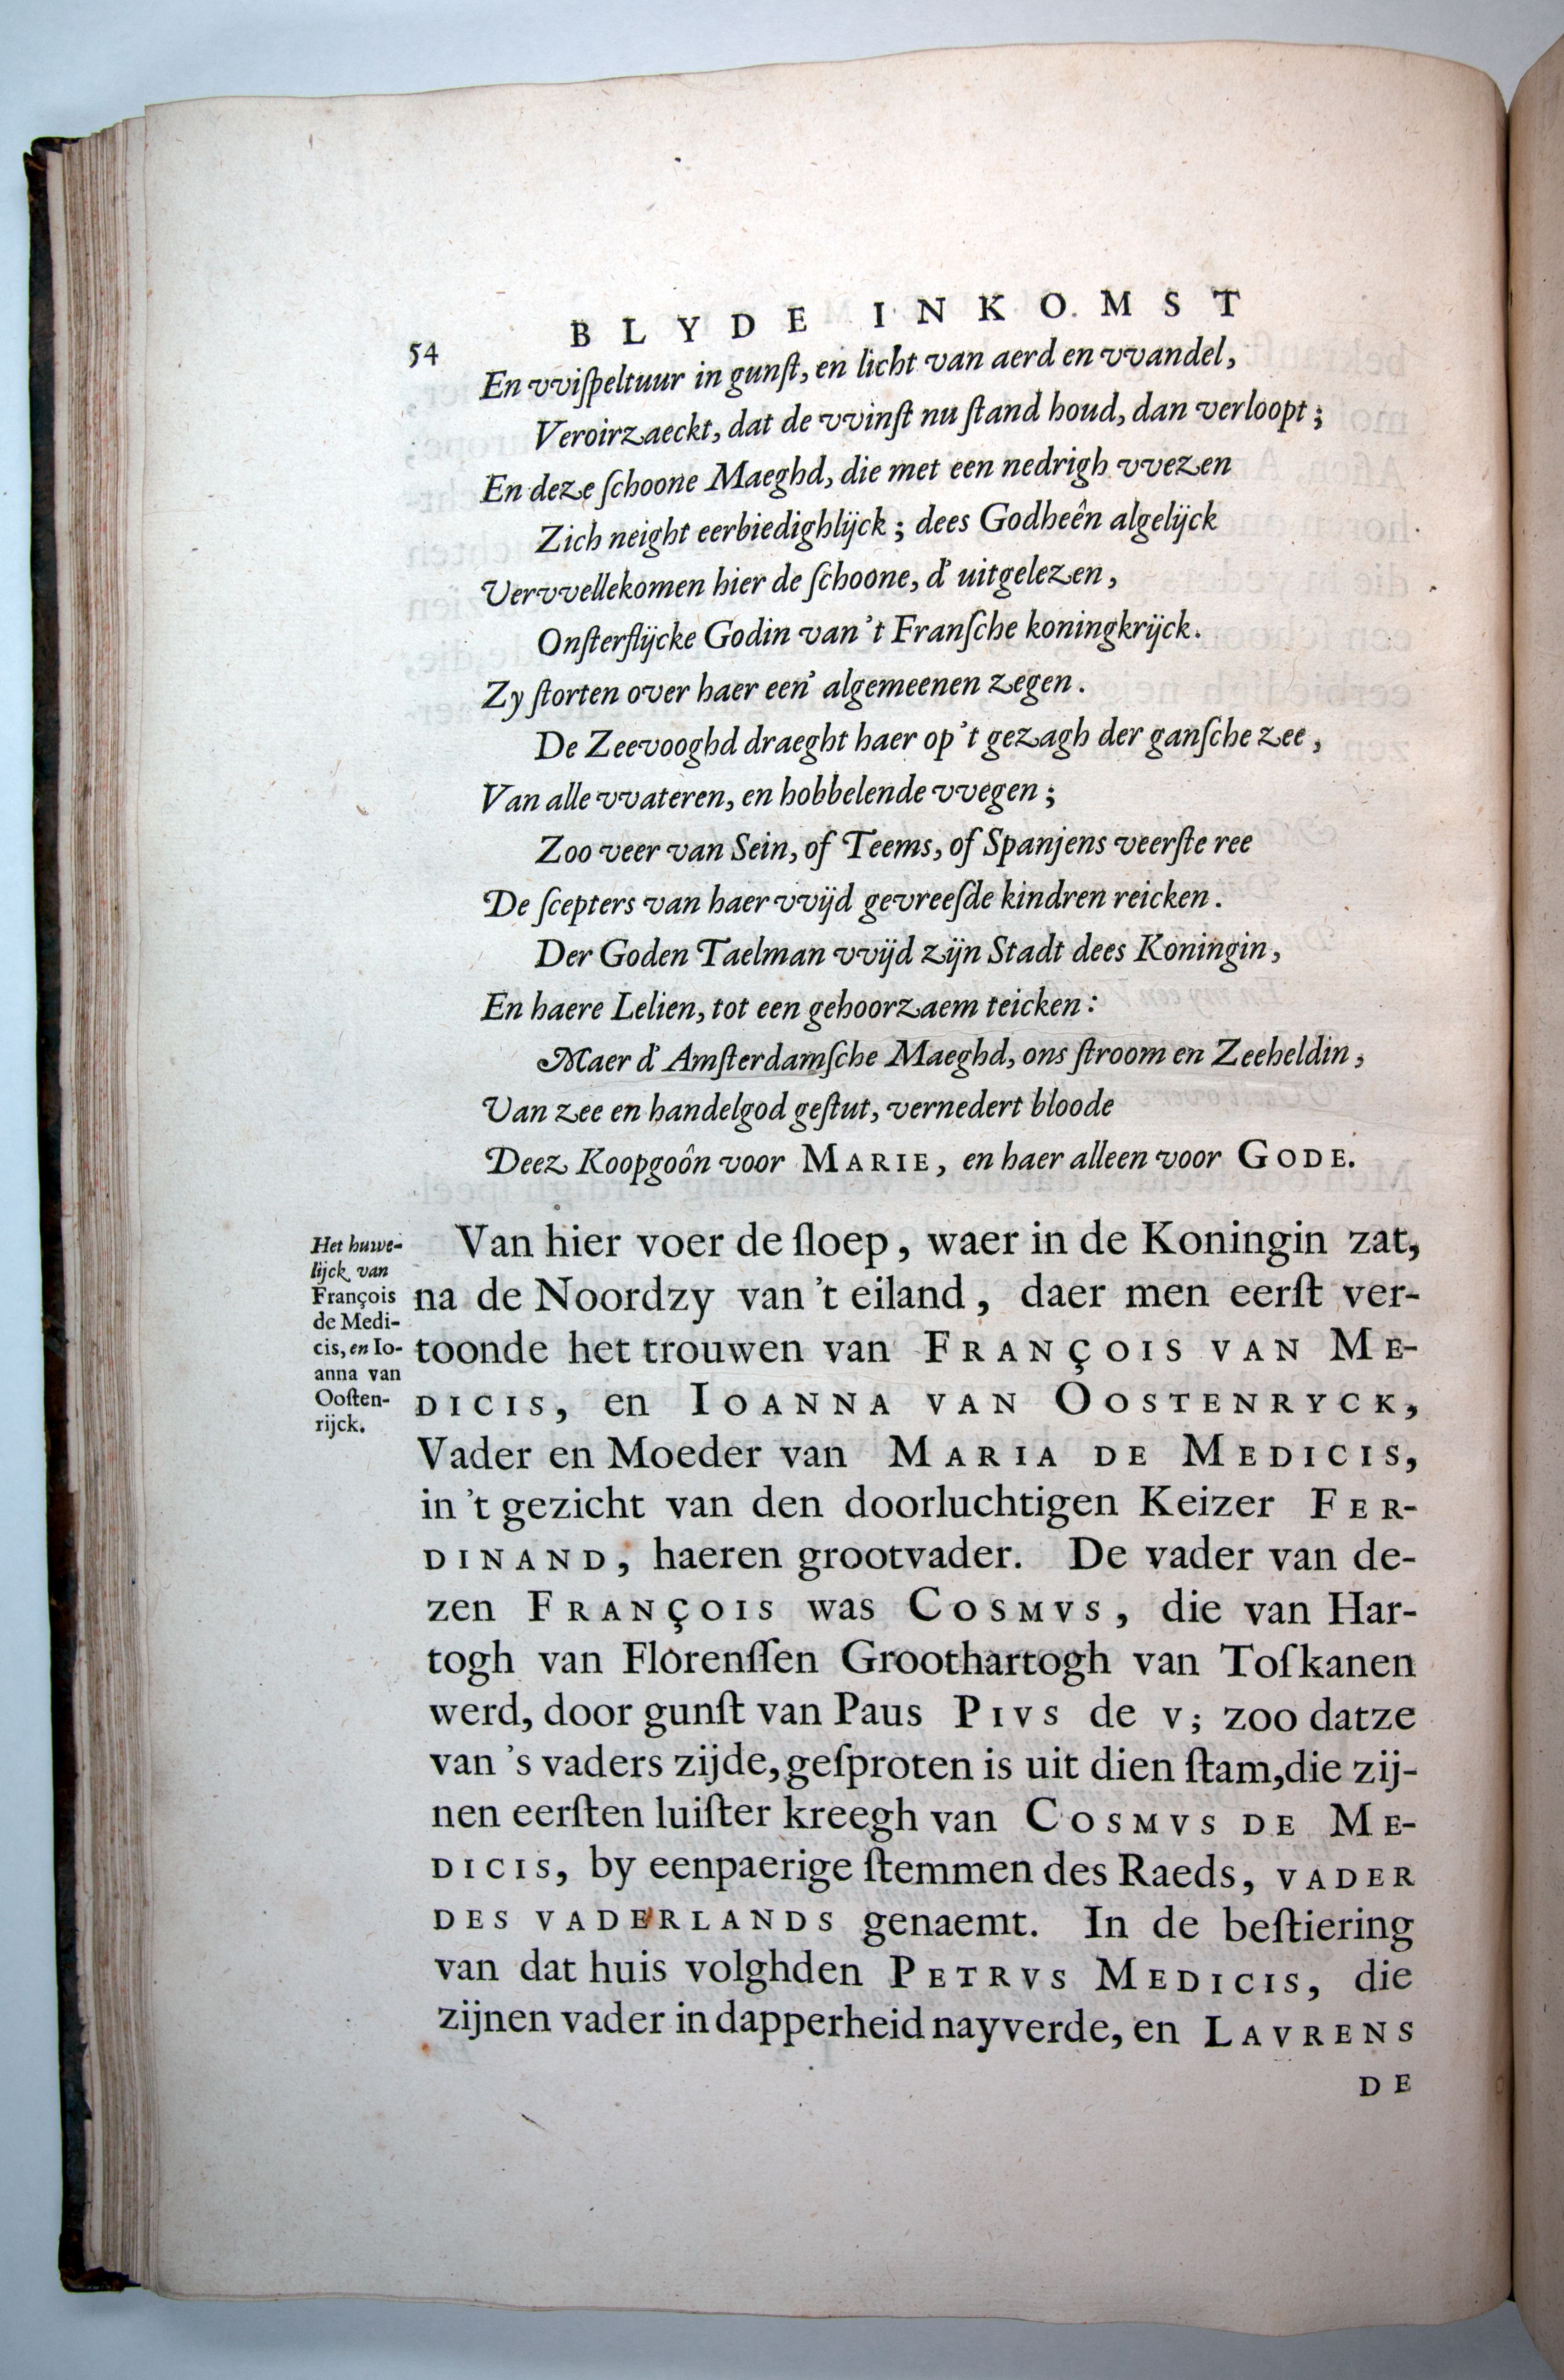 54 BLYDE INKOMST
En vviſpeltuur in gunſt, en licht van aerd en vvandel,
Veroirzaeckt, dat de vvinſt nu ſtand houd, dan verloopt;
En deze ſchoone Maeghd, die met een nedrigh vvezen
Zich neight eerbiedighlijck; dees Godheên algelijck
Vervvellekomen hier de ſchoone, d' uitgelezen,
Onſterflijcke Godin van 't Franſche koningkrijck.
Zy ſtorten over haer een' algemeenen zegen.
De Zeevooghd draeght haer op 't gezagh der ganſche zee,
Van alle vvateren, en hobbelende vvegen;
Zoo veer van Sein, of Teems, of Spanjens veerſte ree
De ſcepters van haer vvijd gevreeſde kindren reicken.
Der Goden Taelman vvijd zijn Stadt dees Koningin,
En haere Lelien, tot een gehoorzaem teicken:
Maer d' Amſterdamſche Maeghd, ons ſtroom en Zeeheldin,
Van zee en handelgod geſtut, vernedert bloode
Deez Koopgoôn voor MARIE, en haer alleen voor GODE.
Het huwe-
lijck van
François
de Medi-
cis, en Io-
anna van
Ooſten-
rijck.
Van hier voer de ſloep, waer in de Koningin zat,
na de Noordzy van 't eiland, daer men eerſt ver-
toonde het trouwen van FRANÇOIS VAN ME-
DICIS, en IOANNA VAN OOSTENRYCK,
Vader en Moeder van MARIA DE MEDICIS,
in 't gezicht van den doorluchtigen Keizer FER-
DINAND, haeren grootvader. De vader van de-
zen FRANÇOIS was COSMVS, die van Har-
togh van Florenſſen Groothartogh van Toſkanen
werd, door gunſt van Paus PIVS de V; zoo datze
van 's vaders zijde, geſproten is uit dien ſtam, die zij-
nen eerſten luiſter kreegh van COSMVS DE ME-
DICIS, by eenpaerige ſtemmen des Raeds, VADER
DES VADERLANDS genaemt. In de beſtiering
van dat huis volghden PETRVS MEDICIS, die
zijnen vader in dapperheid nayverde, en LAVRENS
DE